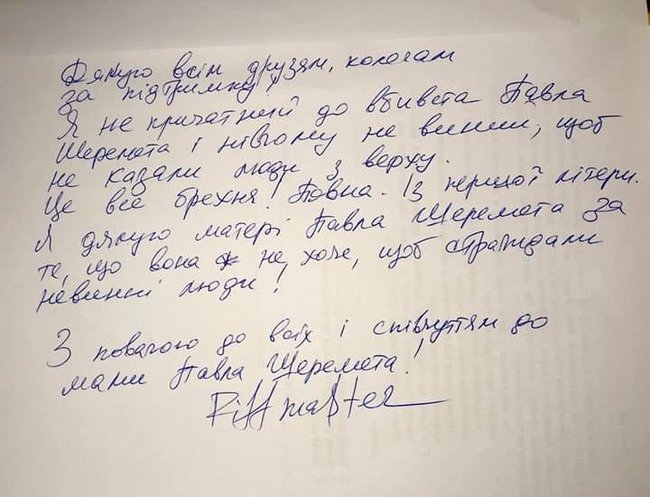 Дякую всім друзям, колегам
за підтримку!
Я не причатний до вбивста Павла
Шеремета і нівчому не винни, щоб
не казали люди з верху.
Це все брехня! Повна. Із першої літери.
Я дякую матері Павла Шеремета за
те, що вона не хоче, щоб страждали
невинні люди!
З повагою до всіх і співчуттям до
мами Павла Шеремета!
Riffmaster